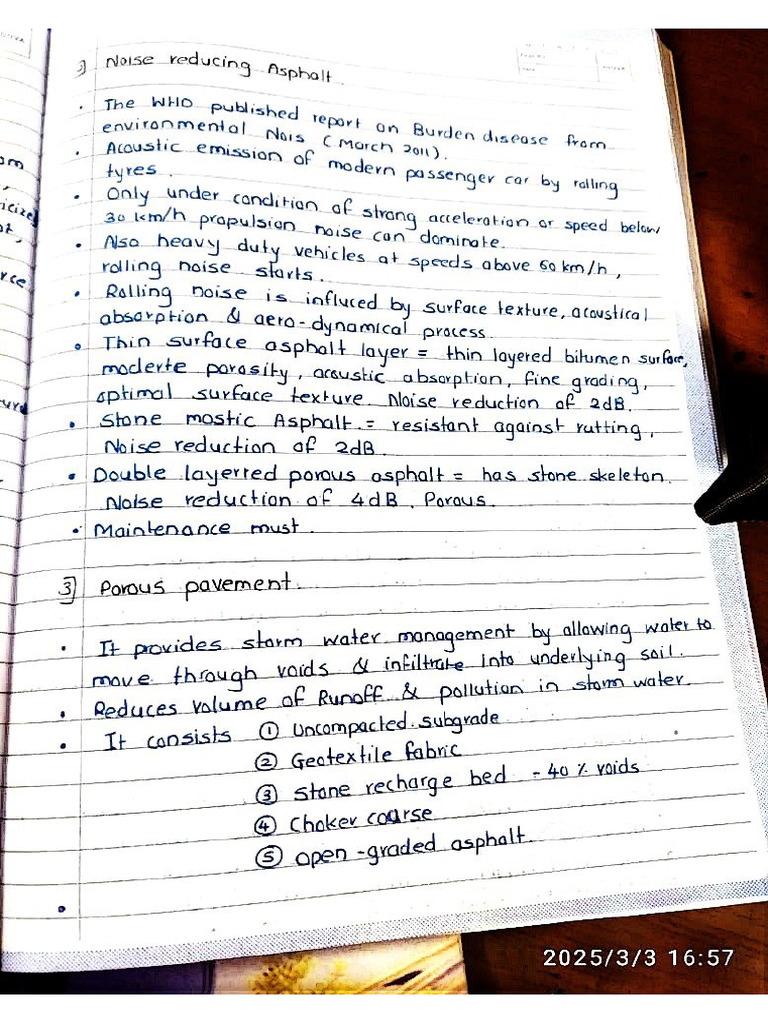 Noise reducing Asphalt.
• The WHO published report on Burden disease from
environmental Nois (March 2011).
• Acoustic emission of modern passenger car by rolling
tyres.
• Only under condition of strong acceleration or speed below
30 km/h propulsion noise can dominate.
• Also heavy duty vehicles at speeds above 60 km/h,
rolling noise starts.
• Rolling noise is influced by surface texture, acoustical
absorption & aero-dynamical process.
• Thin surface asphalt layer = thin layered bitumen surface,
moderte porosity, acoustic absorption, fine grading,
optimal surface texture. Noise reduction of 2dB.
• Stone mostic Asphalt. = resistant against rutting,
Noise reduction of 2dB.
• Double layerred porous asphalt = has stone skeleton.
Noise reduction of 4dB. Porous.
• Maintenance must.
3] Porous pavement.
• It provides storm water management by allowing water to
move through voids & infiltrate into underlying soil.
• Reduces volume of Runoff & pollution in storm water.
• It consists ① Uncompacted subgrade
② Geotextile fabric
③ Stone recharge bed - 40% voids
④ Choker course
⑤ open-graded asphalt.
2025/3/3 16:57